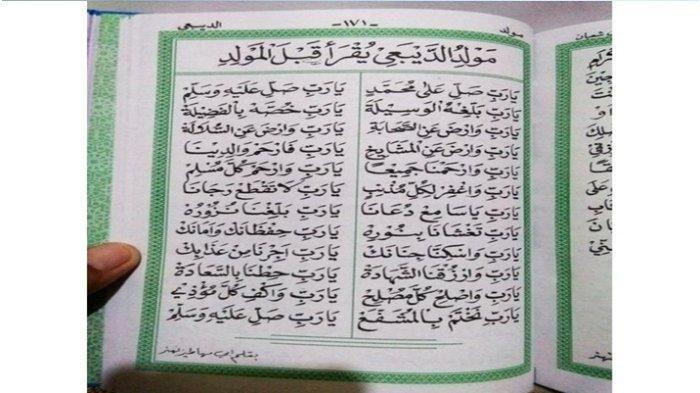 مولد
-١٧١-
الديبعي
مَوْلِدُ الدَّيْبَعِي يُقْرَأُ قَبْلَ الْمَوْلِدِ
يَا رَبِّ صَلِّ عَلَى مُحَمَّدْ يَا رَبِّ صَلِّ عَلَيْهِ وَسَلِّمْ
يَا رَبِّ بَلِّغْهُ الْوَسِيلَةْ يَا رَبِّ خُصَّهُ بِالْفَضِيلَةْ
يَا رَبِّ وَارْضَ عَنِ الصَّحَابَةْ يَا رَبِّ وَارْضَ عَنِ السُّلَالَةْ
يَا رَبِّ وَارْضَ عَنِ الْمَشَايِخْ يَا رَبِّ فَارْحَمْ وَالِدِينَا
يَا رَبِّ وَارْحَمْنَا جَمِيعًا يَا رَبِّ وَارْحَمْ كُلَّ مُسْلِمْ
يَا رَبِّ وَاغْفِرْ لِكُلِّ مُذْنِبْ يَا رَبِّ لَا تَقْطَعْ رَجَانَا
يَا رَبِّ يَا سَامِعْ دُعَانَا يَا رَبِّ بَلِّغْنَا نَزُورُهْ
يَا رَبِّ تَغْشَانَا بِنُورِهْ يَا رَبِّ حِفْظَانَكْ وَأَمَانَكْ
يَا رَبِّ وَاسْكِنَّا جِنَانَكْ يَا رَبِّ أَجِرْنَا مِنْ عَذَابِكْ
يَا رَبِّ وَارْزُقْنَا الشَّهَادَةْ يَا رَبِّ حِطْنَا بِالسَّعَادَةْ
يَا رَبِّ وَاصْلِحْ كُلَّ مُصْلِحْ يَا رَبِّ وَاكْفِ كُلَّ مُؤْذِي
يَا رَبِّ نَخْتِمْ بِالْمُشَفَّعْ يَا رَبِّ صَلِّ عَلَيْهِ وَسَلِّمْ